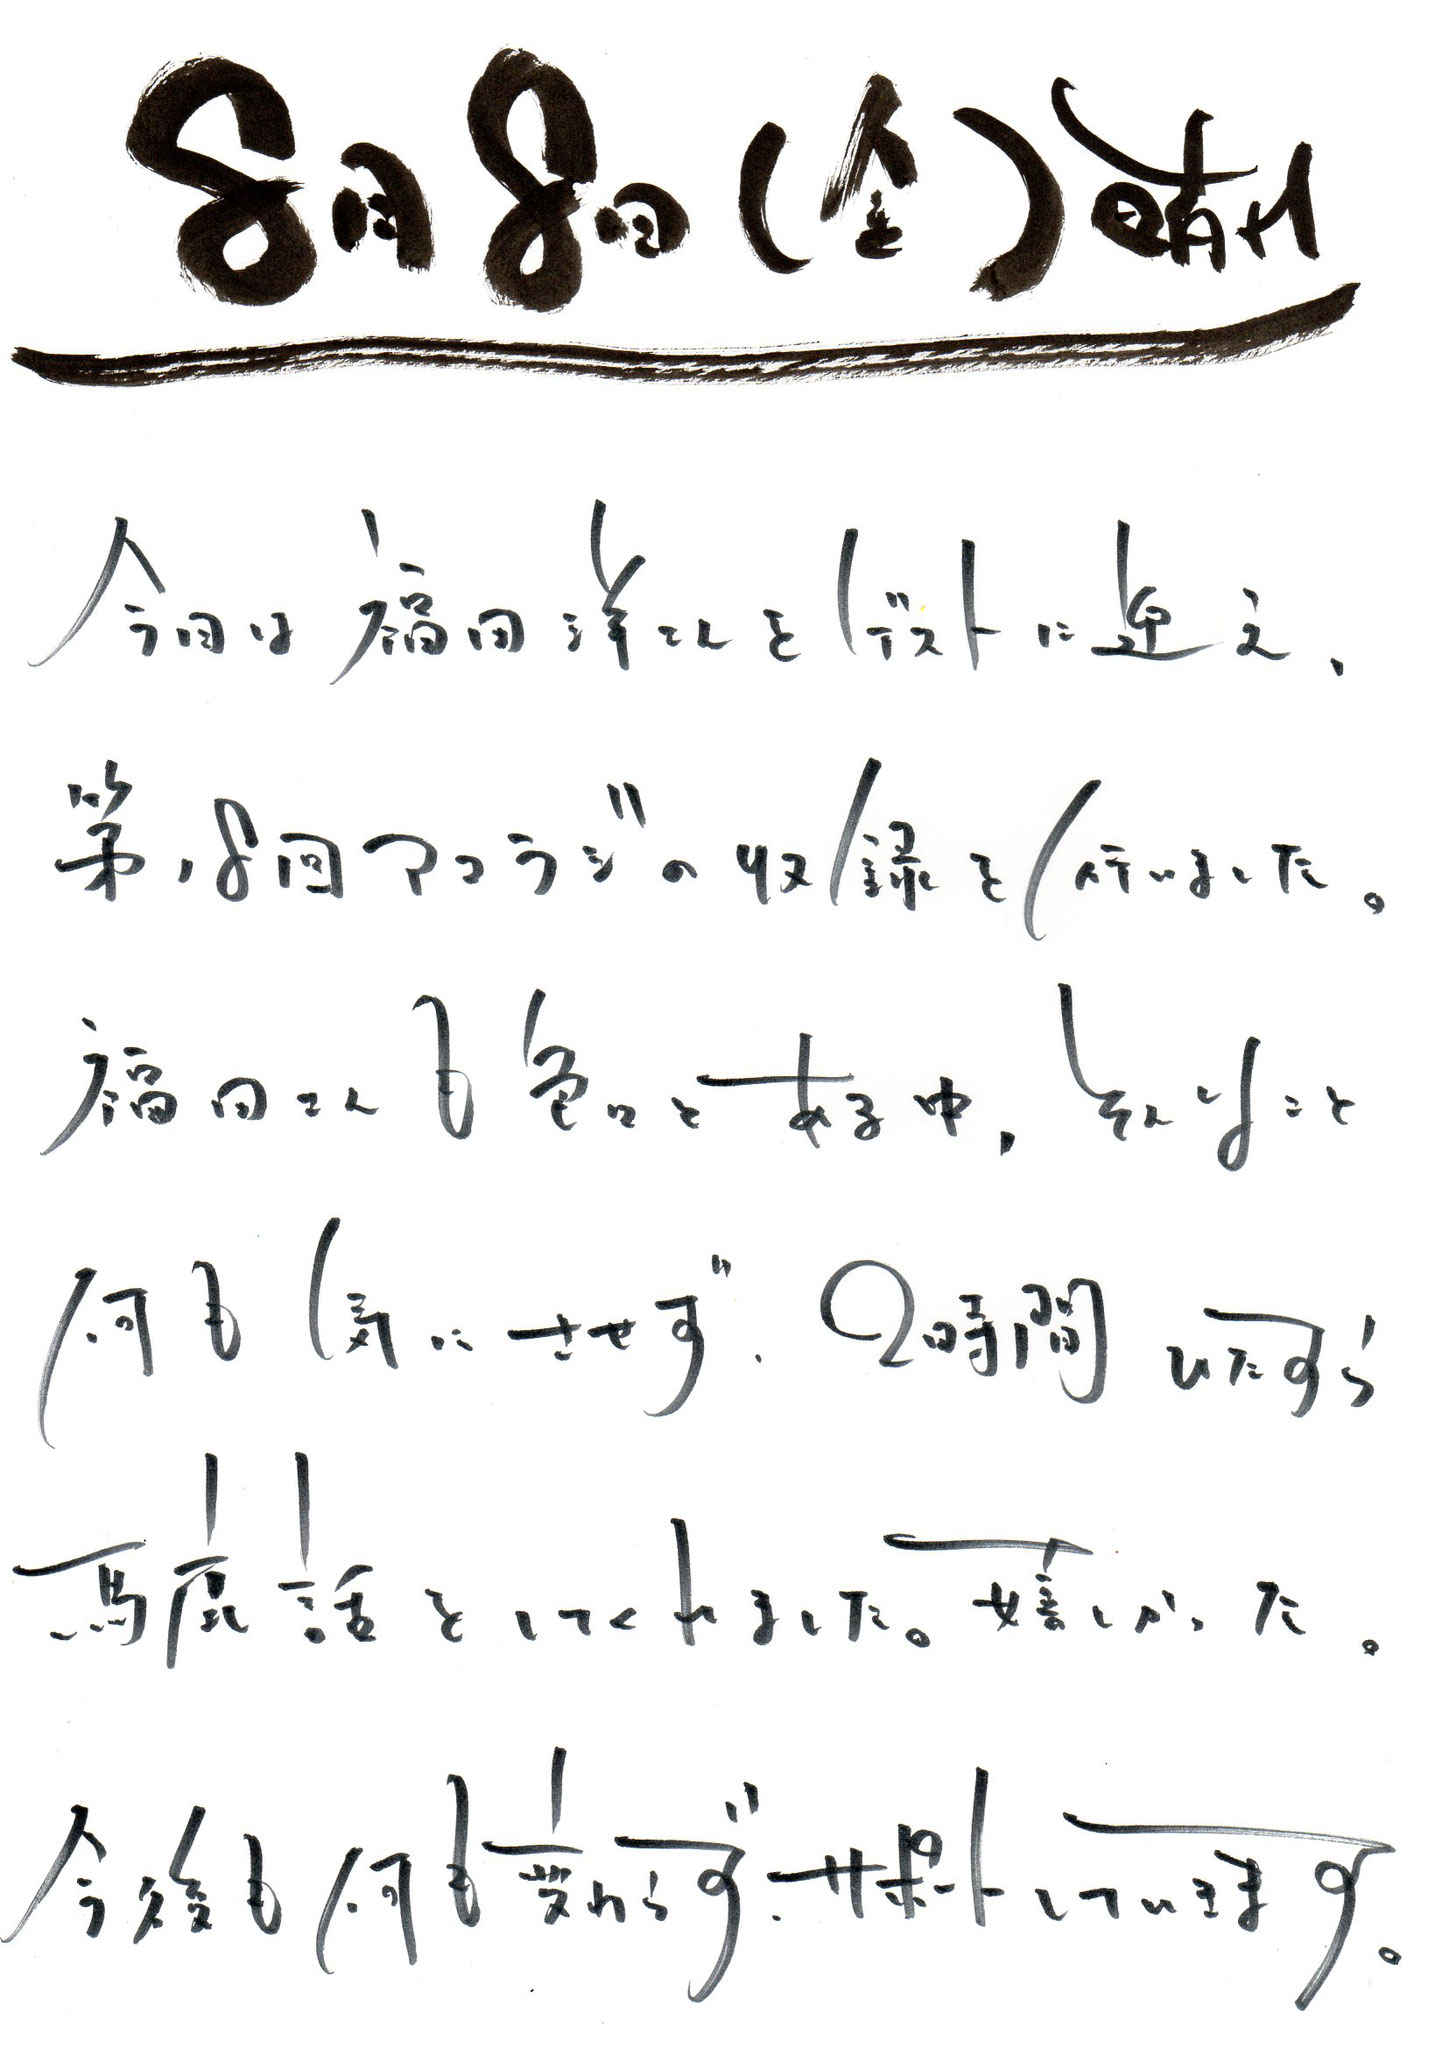 8月8日(金)晴れ
今回は福田洋さんをゲストに迎え、
第18回アコラジの収録を行いました。
福田さんも色々とある中、そんなこと
何も気にさせず、2時間ひたすら
馬鹿話をしてくれました。嬉しかった。
今後も何も変わらず、サポートしていきます。